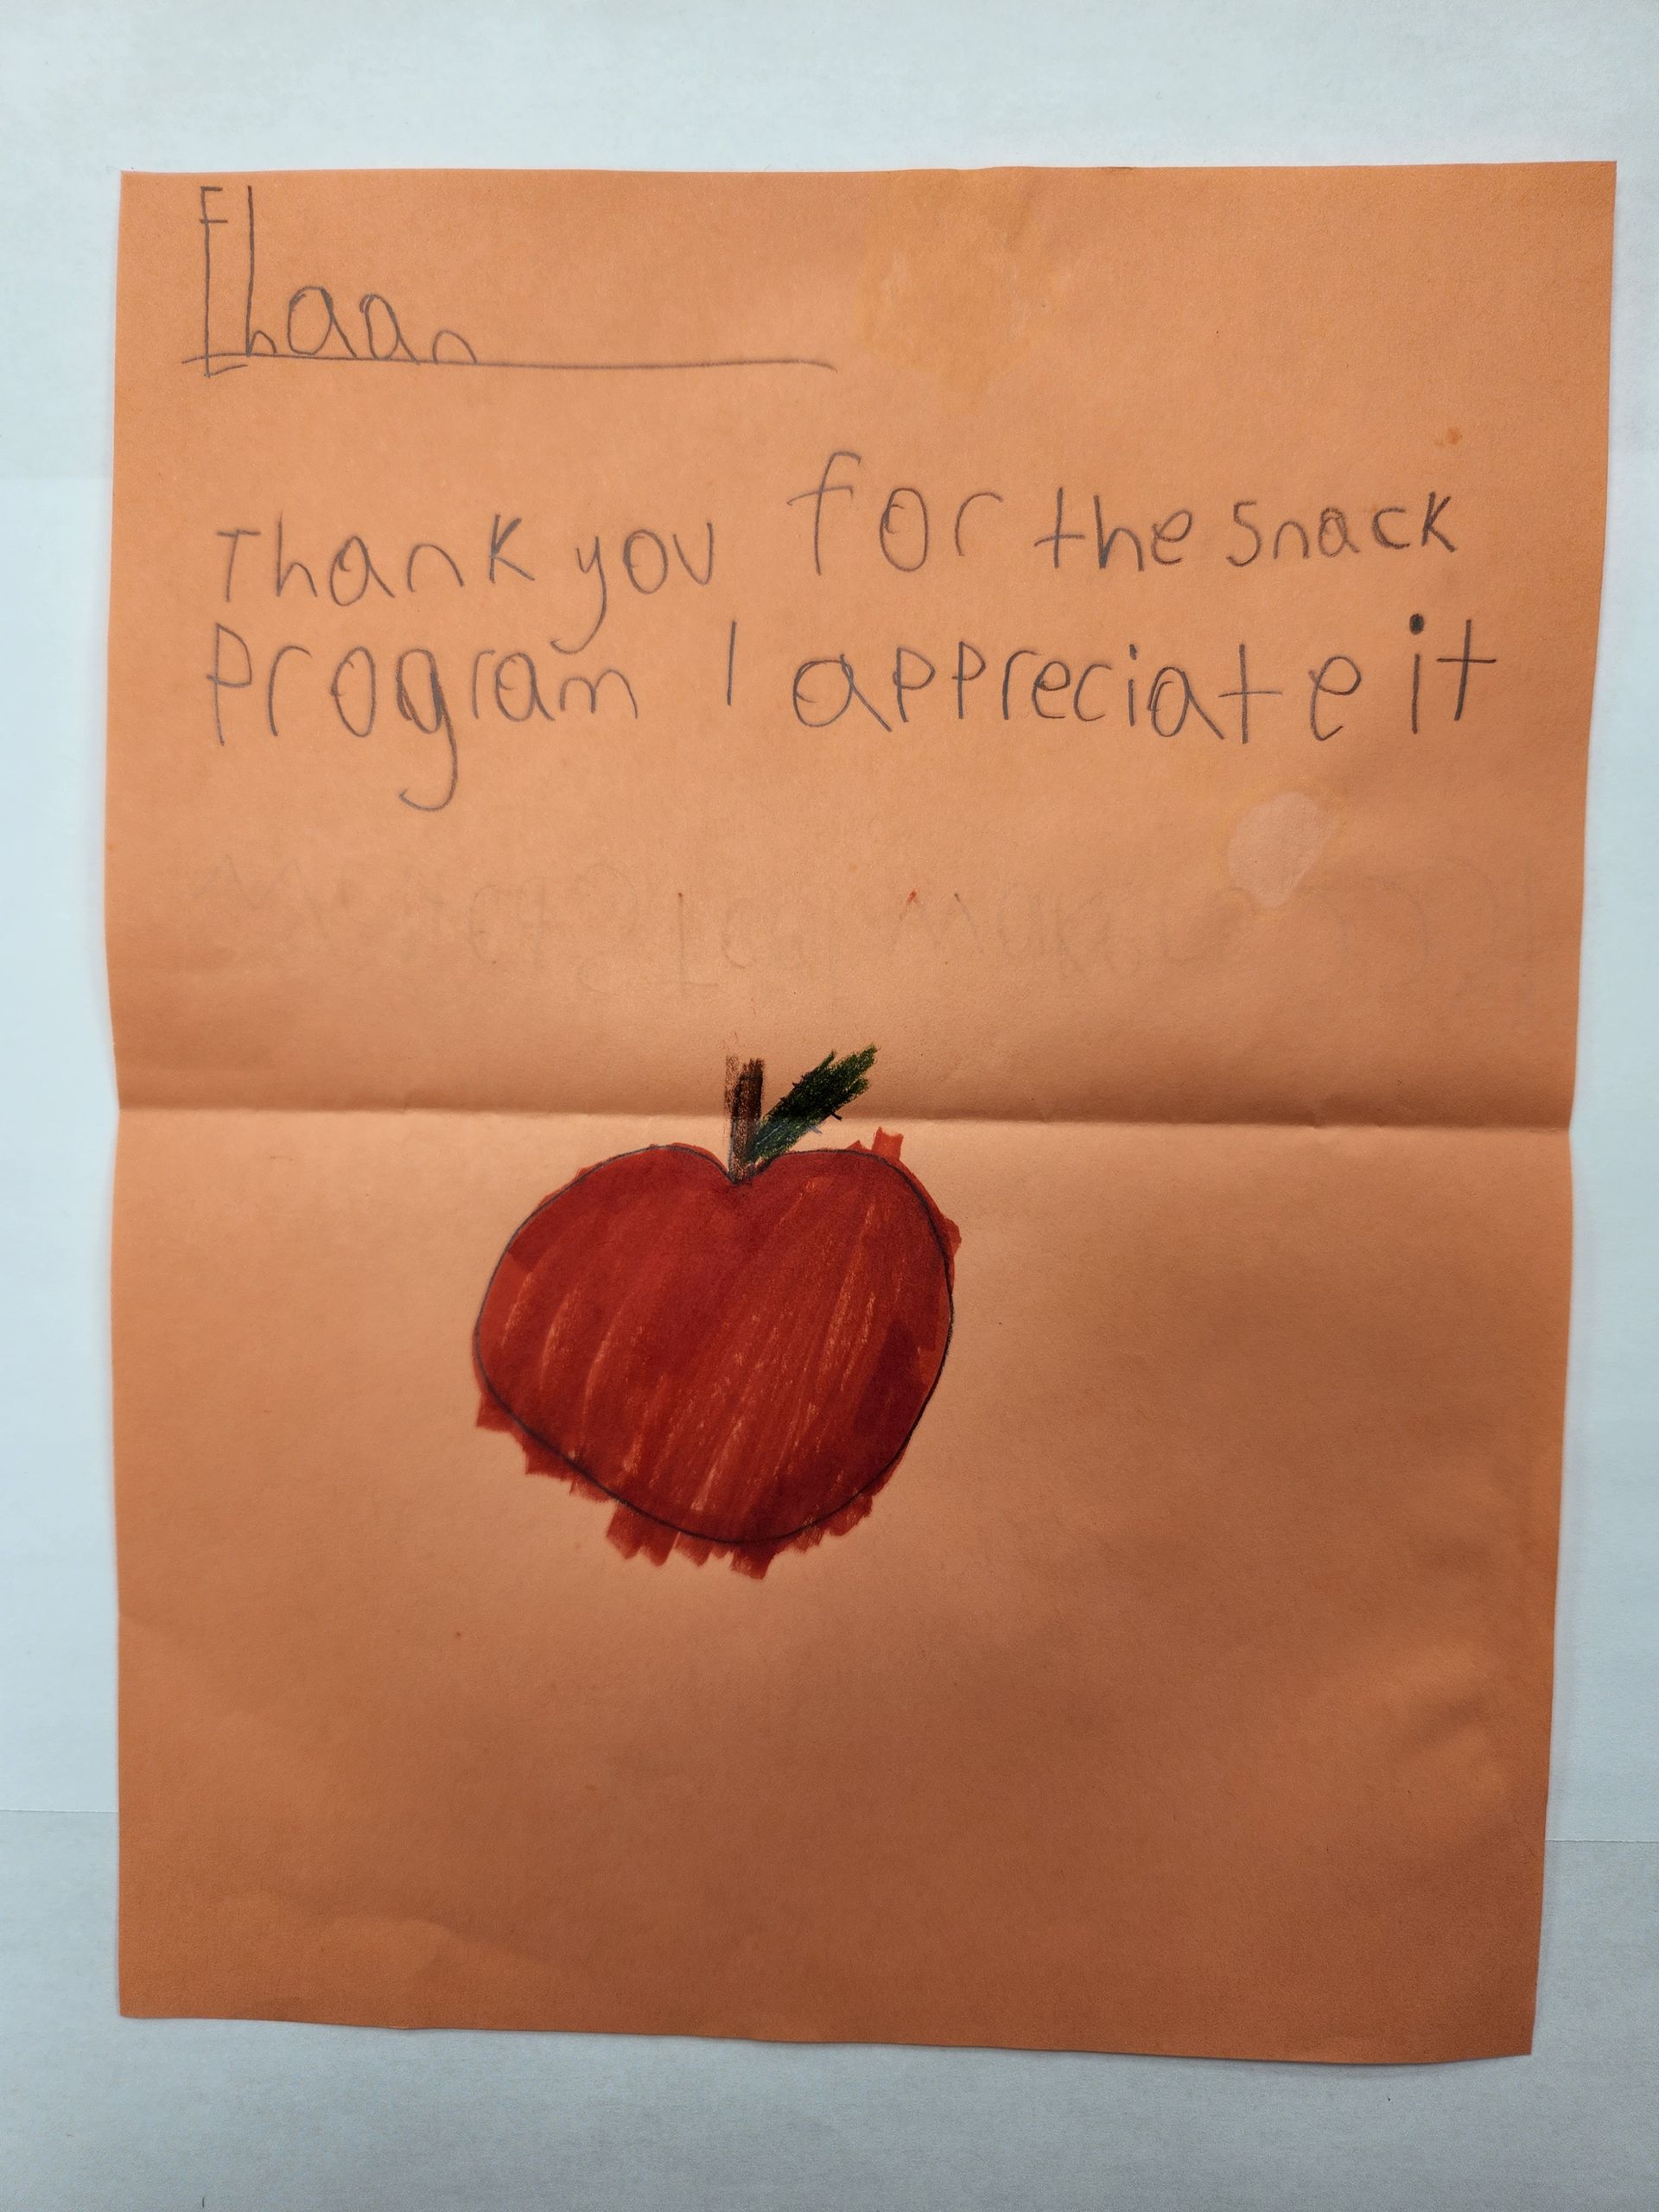 Ehaan
Thank you for the snack
Program I appreciate it